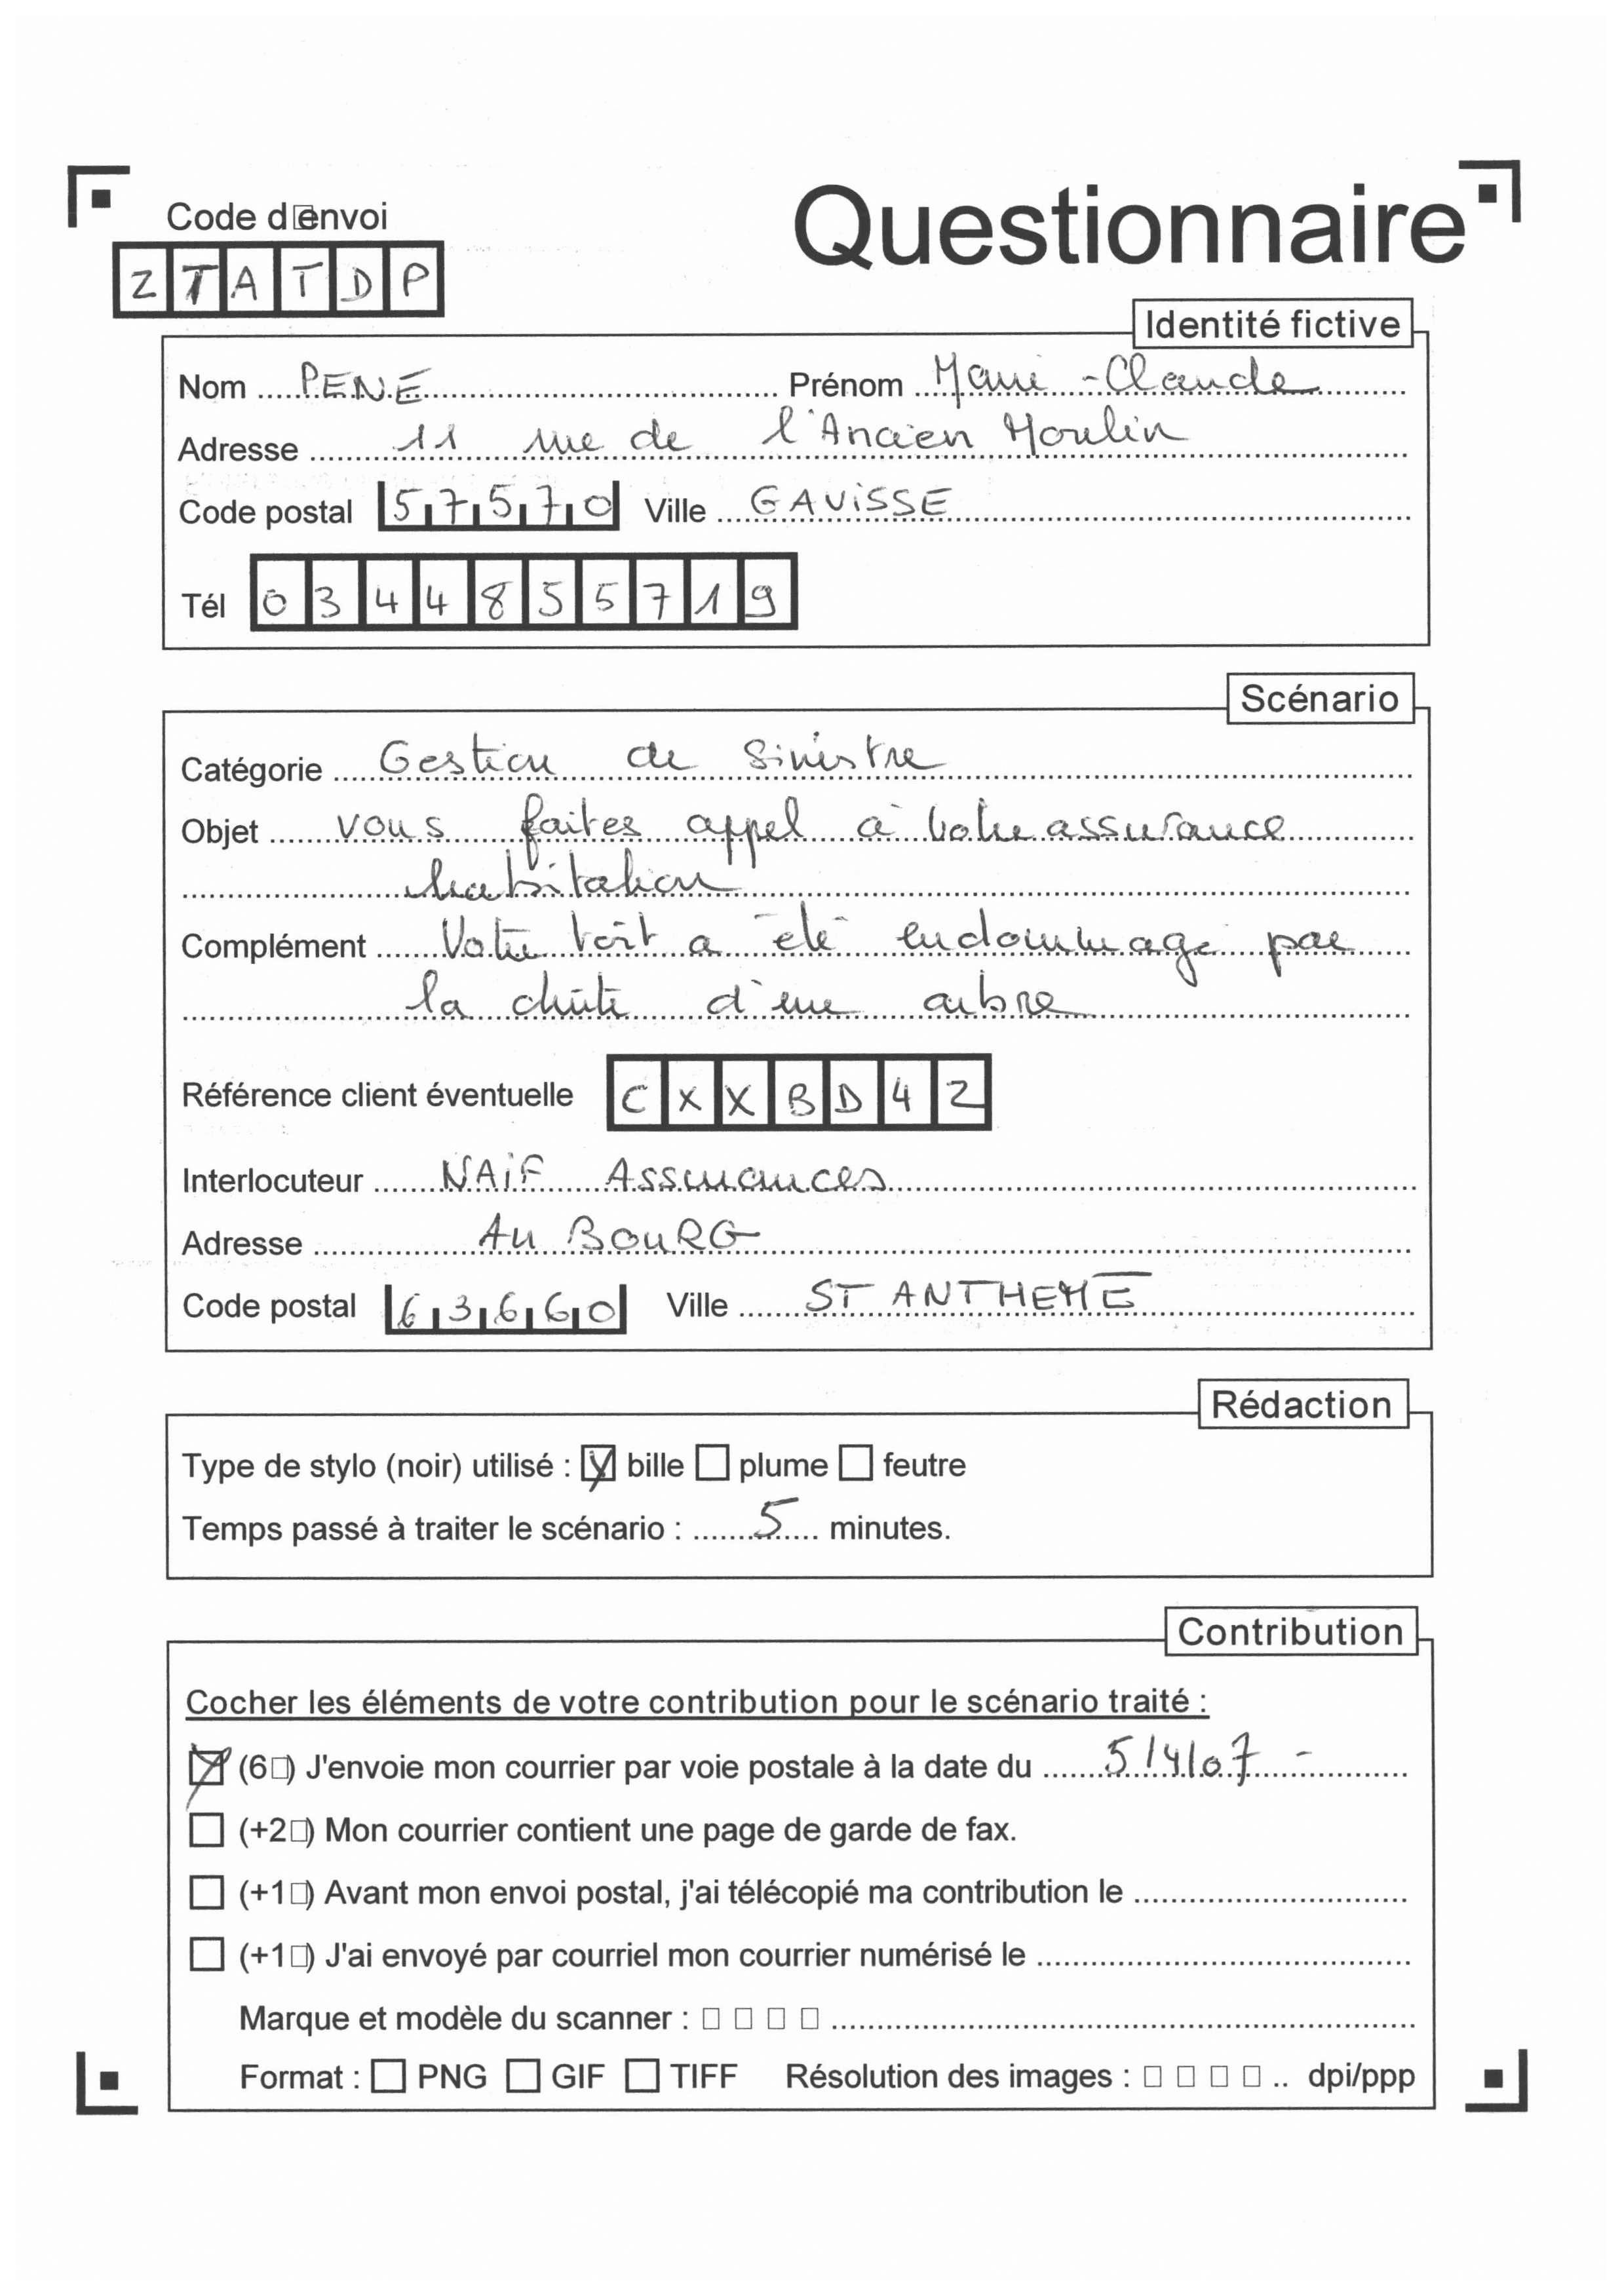 Code d□envoi
Questionnaire
Z T A T D P
Identité fictive
Nom PENE Prénom Marie-Claude
Adresse 11 rue de l'Ancien Moulin
Code postal 57570 Ville GAVISSE
Tél 0344855719
Scénario
Catégorie Gestion de Sinistre
Objet vous faites appel à votre assurance
habitation
Complément Votre toît a été endommagé par
la chûte d'un arbre
Référence client éventuelle CXXBD42
Interlocuteur NAiF Assurances
Adresse Au BouRG
Code postal 63660 Ville ST ANTHEME
Rédaction
Type de stylo (noir) utilisé : ☒ bille □ plume □ feutre
Temps passé à traiter le scénario : 5 minutes.
Contribution
Cocher les éléments de votre contribution pour le scénario traité :
☒ (6□) J'envoie mon courrier par voie postale à la date du 5/4/07 -
□ (+2□) Mon courrier contient une page de garde de fax.
□ (+1□) Avant mon envoi postal, j'ai télécopié ma contribution le
□ (+1□) J'ai envoyé par courriel mon courrier numérisé le
Marque et modèle du scanner : □ □ □ □
Format : □ PNG □ GIF □ TIFF Résolution des images : □ □ □ □ .. dpi/ppp